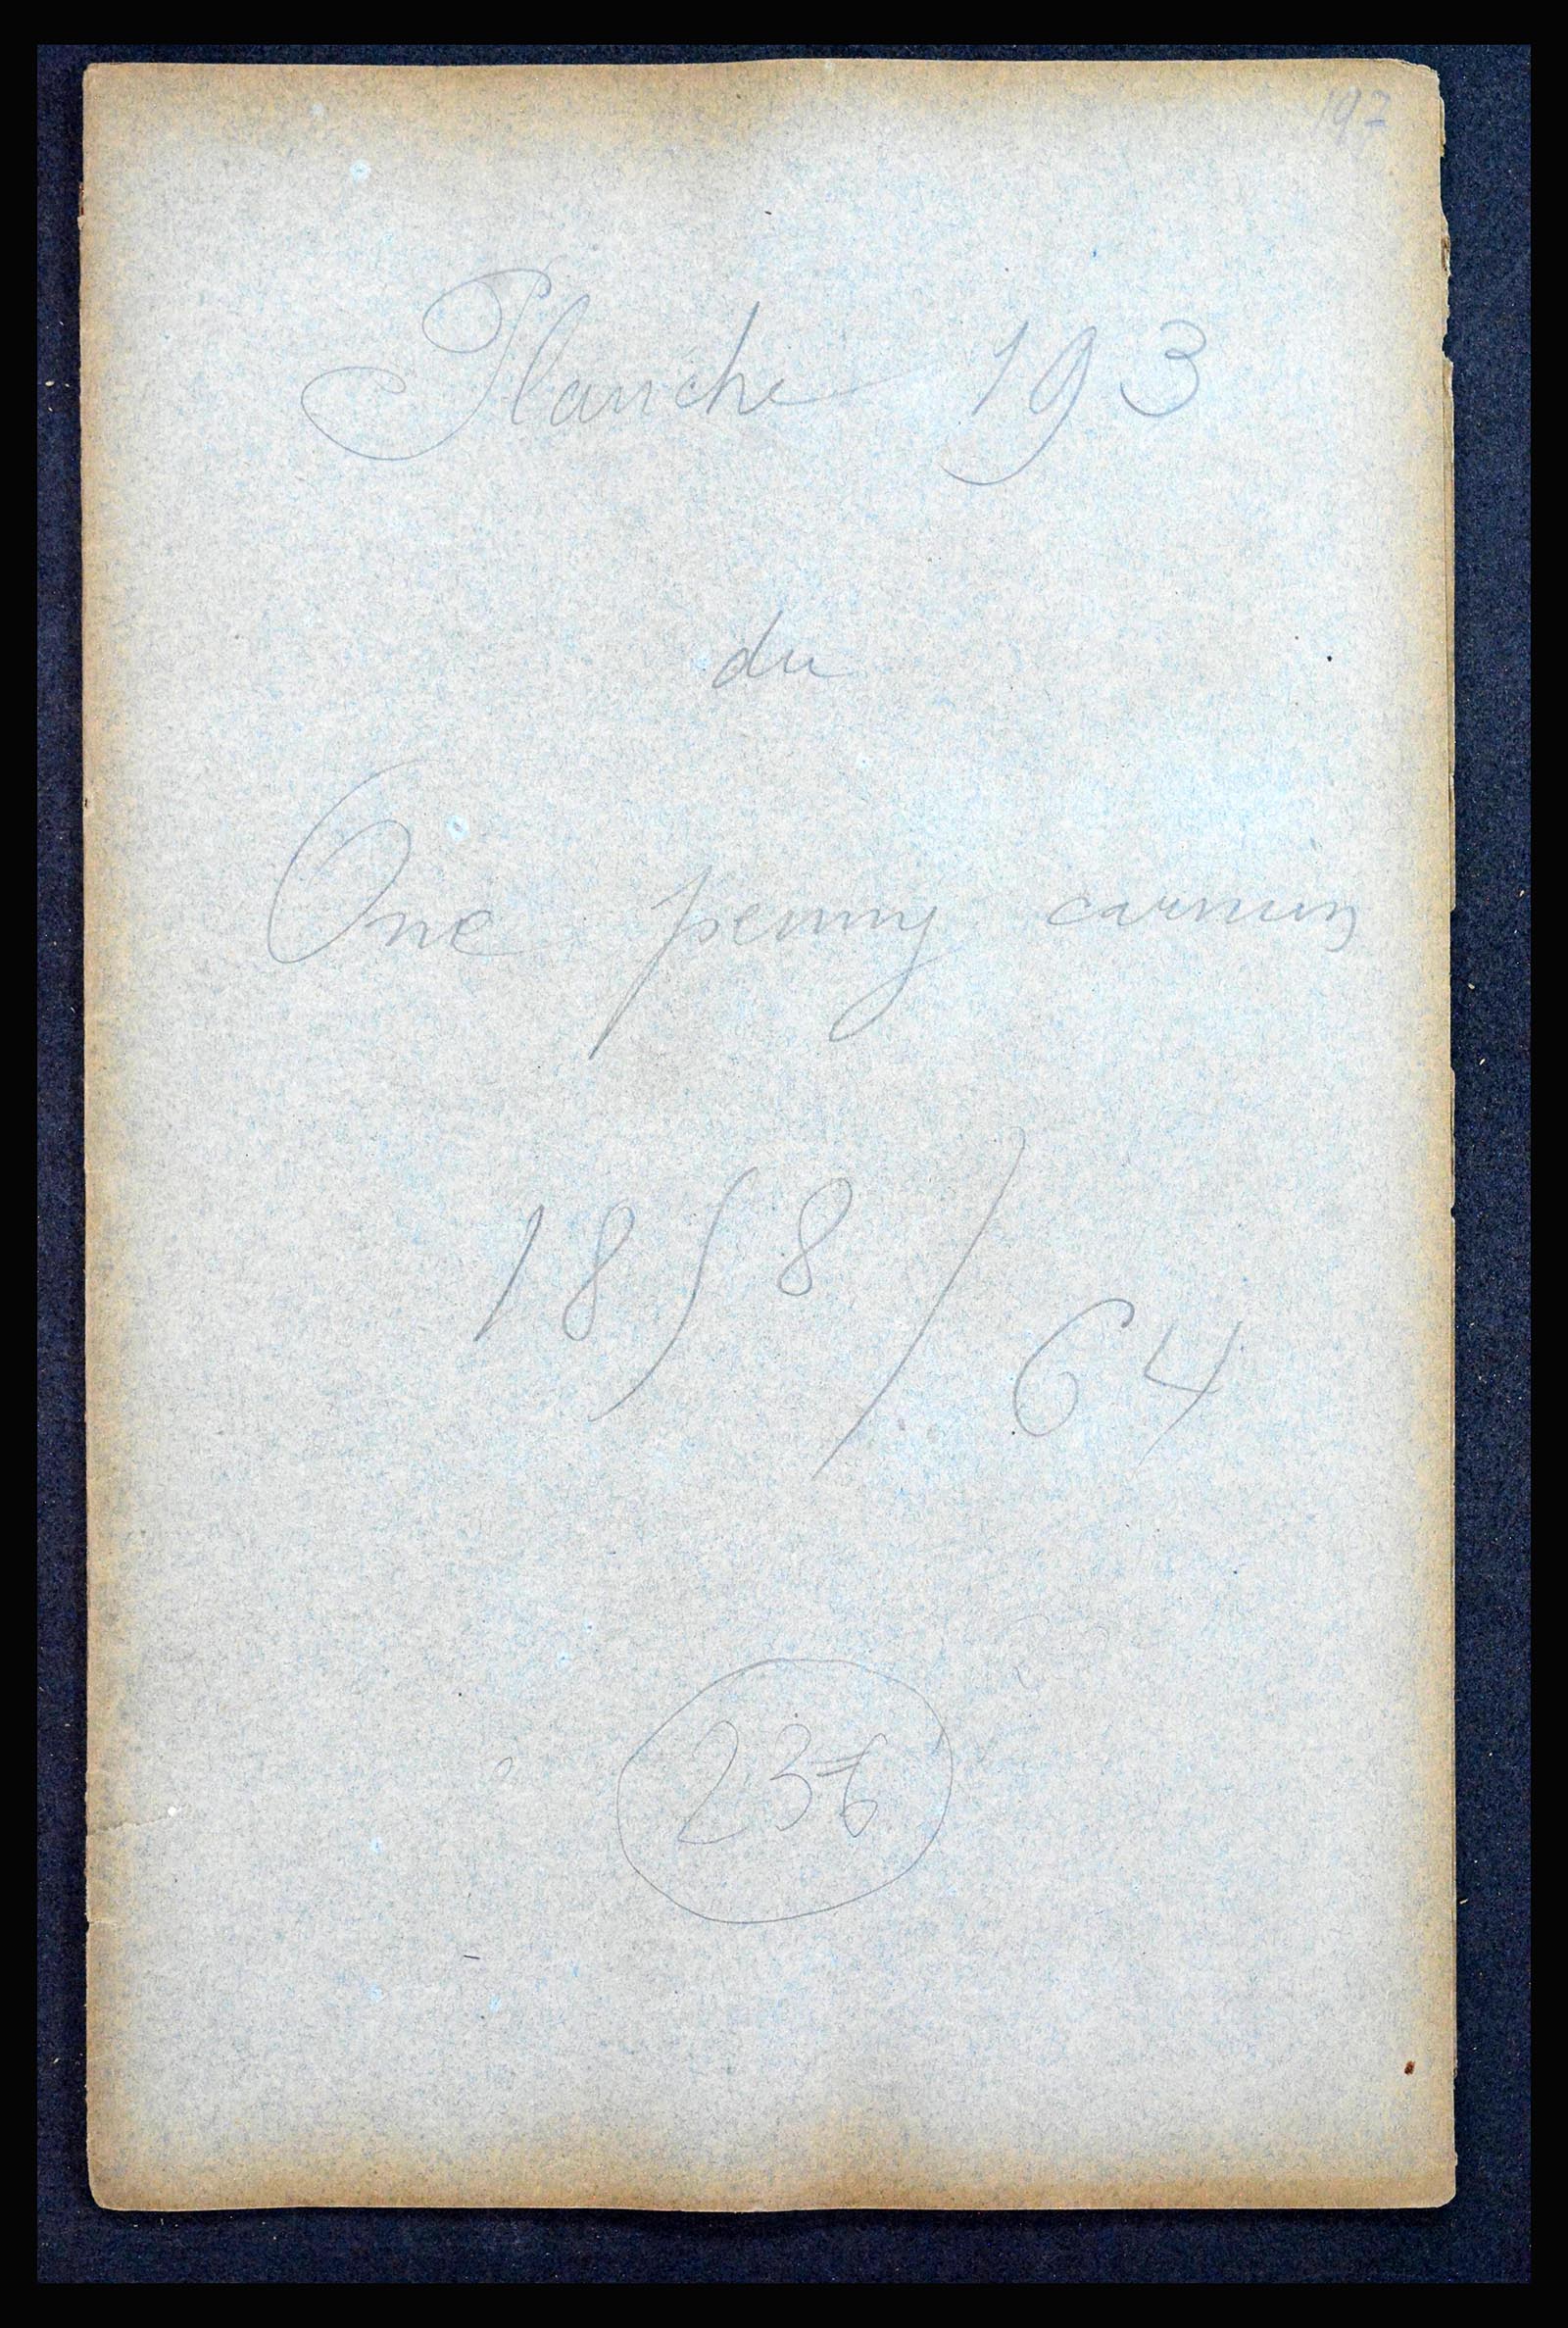 Planche 193
du
One penny carmin
1858/64